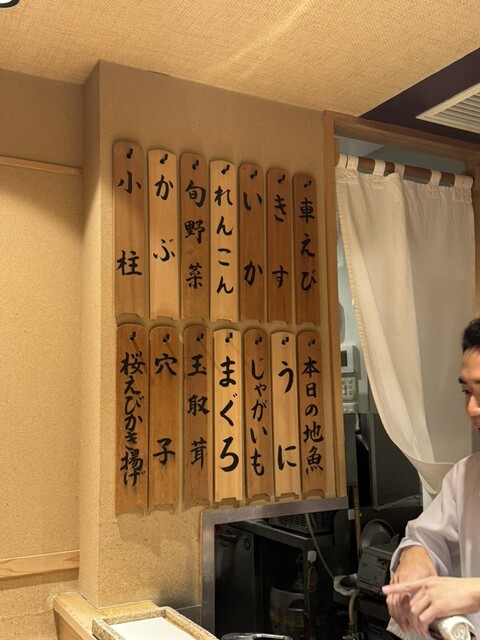 車えび
きす
いか
れんこん
旬野菜
かぶ
小柱
本日の地魚
うに
じゃがいも
まぐろ
玉取茸
穴子
桜えびかき揚げ